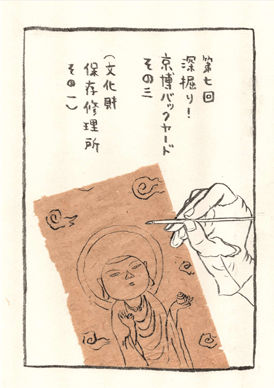 第七回
深掘り！
京博バックヤード
その三
（文化財
保存修理所
その一）